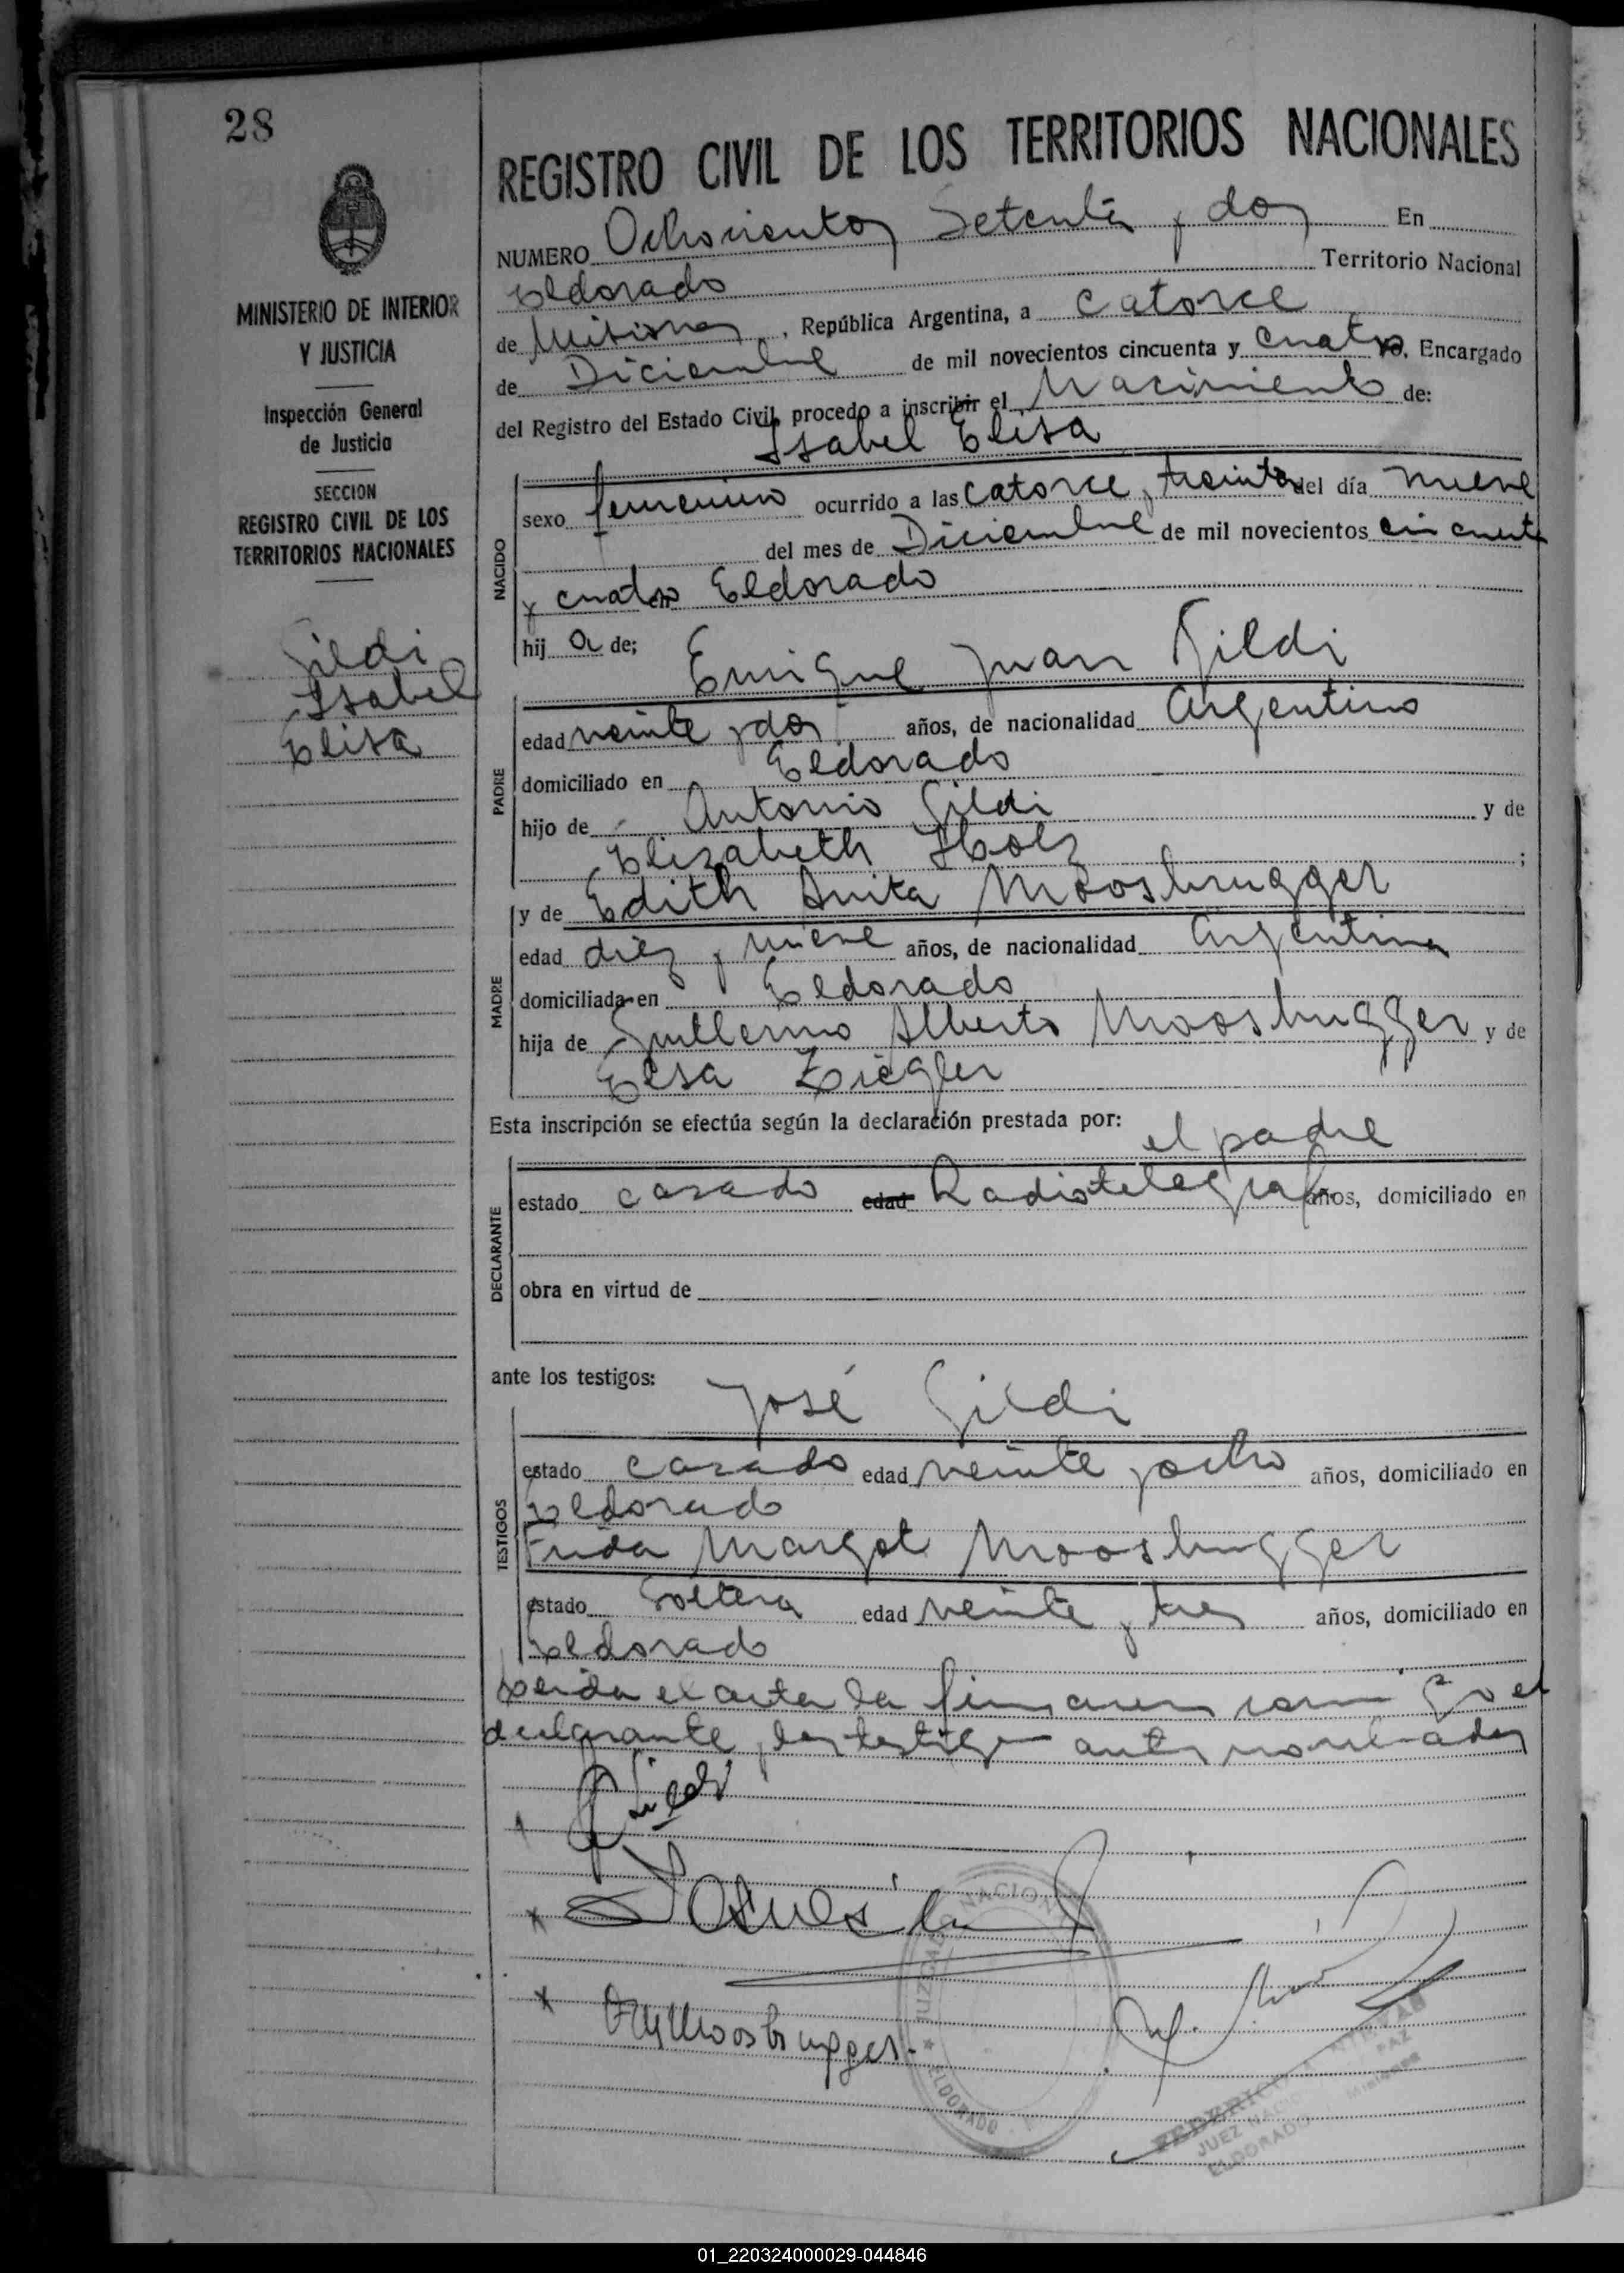 28
REGISTRO CIVIL DE LOS TERRITORIOS NACIONALES
NUMERO Ochocientos Setenta y dos En
Eldorado Territorio Nacional
de Misiones, República Argentina, a catorce
de Diciembre de mil novecientos cincuenta y cuatro yo, Encargado
del Registro del Estado Civil, procedo a inscribir el Nacimiento de:
Isabel Elisa
MINISTERIO DE INTERIOR
Y JUSTICIA
Inspección General
de Justicia
SECCION
REGISTRO CIVIL DE LOS
TERRITORIOS NACIONALES
Gildi
Isabel
Elisa
NACIDO
sexo femenino ocurrido a las catorce y treinta del día nueve
del mes de Diciembre de mil novecientos cincuenta
y cuatro en Eldorado
hij a de;
Enrique Juan Gildi
PADRE
edad veinte y dos años, de nacionalidad Argentino
domiciliado en Eldorado
hijo de Antonio Gildi y de
Elizabeth ;
MADRE
y de Edith Anita Moosbrugger
edad diez y nueve años, de nacionalidad Argentina
domiciliada en Eldorado
hija de Guillermo Alberto Moosbrugger y de
Elsa Ziegler
Esta inscripción se efectúa según la declaración prestada por:
el padre
DECLARANTE
estado casado edad Radiotelegraf años, domiciliado en
obra en virtud de
ante los testigos:
José Gildi
TESTIGOS
estado casado edad veinte y ocho años, domiciliado en
Eldorado
Frida Margot Moosbrugger
estado Soltera edad veinte y tres años, domiciliado en
Eldorado
Leida el acta la firmaron conmigo el
declarante y los testigos antes nombrados
Gildi
Moosbrugger
JUZGADO NACIONAL
ELDORADO
JUEZ NACIONAL PAZ
ELDORADO Misiones
01_220324000029-044846